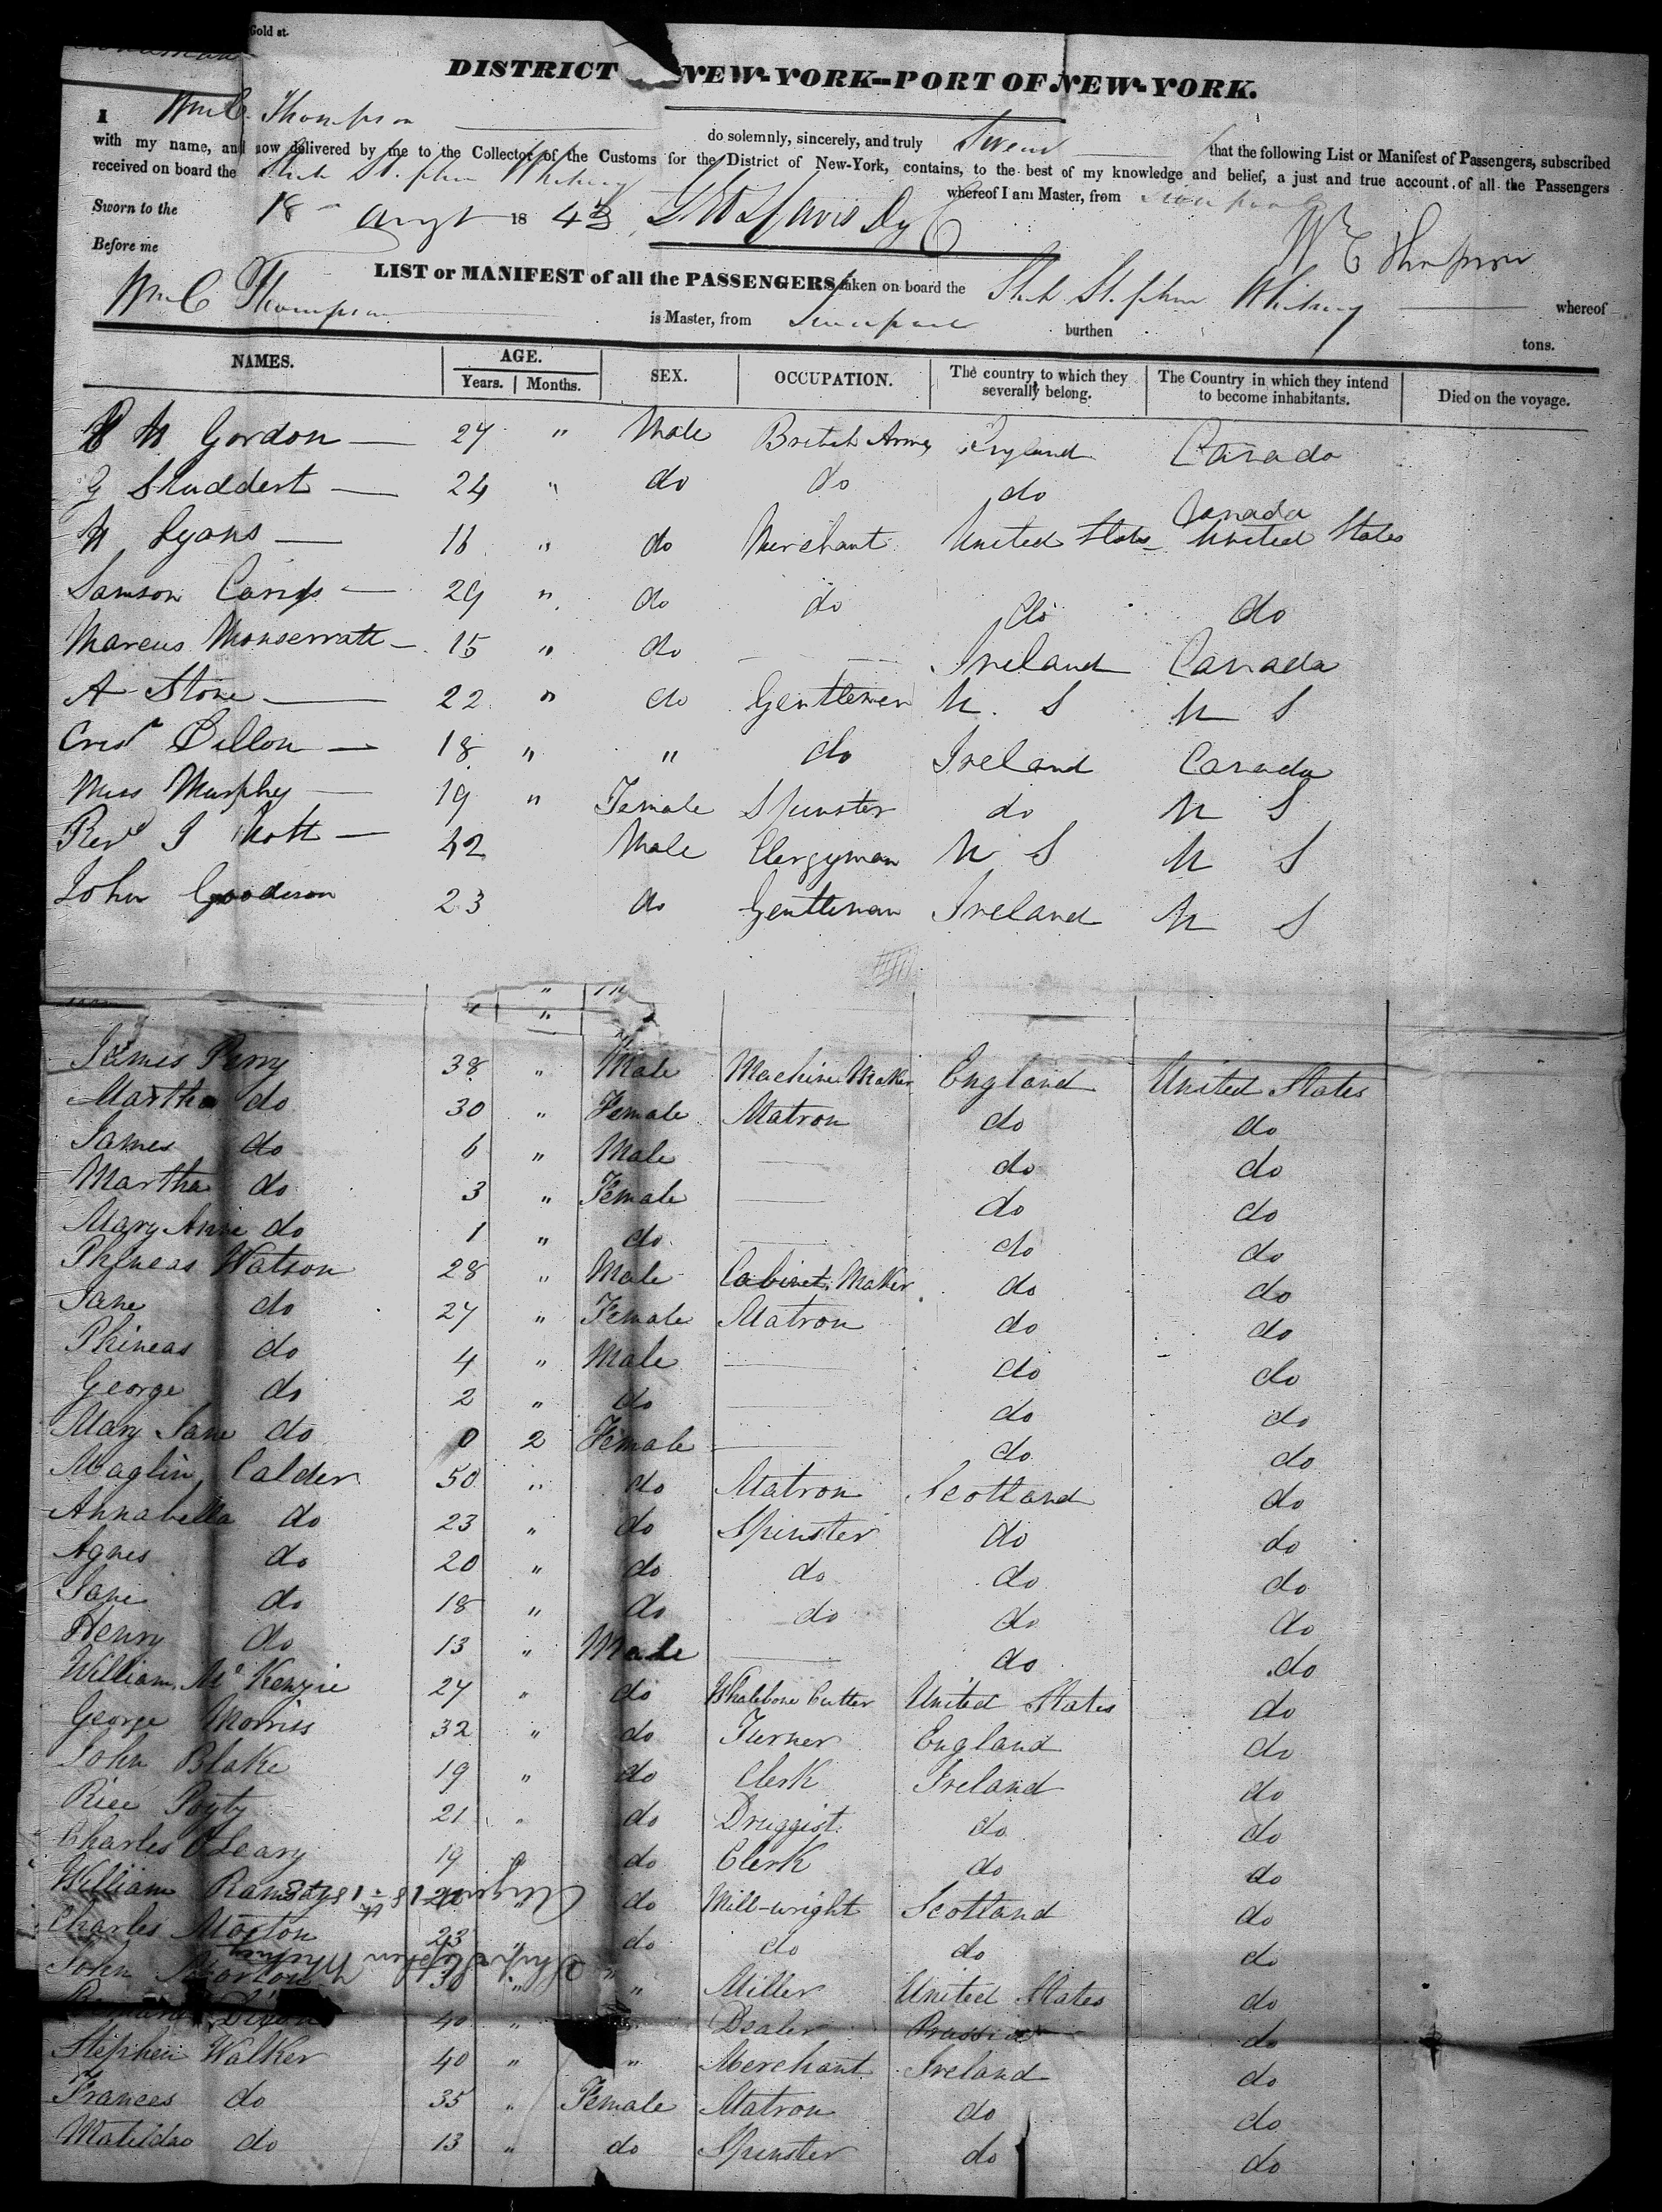 Gold st.
DISTRICT NEW-YORK--PORT OF NEW-YORK.
I Wm C. Thompson do solemnly, sincerely, and truly Swear that the following List or Manifest of Passengers, subscribed
with my name, and now delivered by me to the Collector of the Customs for the District of New-York, contains, to the best of my knowledge and belief, a just and true account of all the Passengers
received on board the Ship Stephen Whitney whereof I am Master, from Liverpool
Sworn to the 18 Augt 1843
Before me
Wm C Thompson
LIST or MANIFEST of all the PASSENGERS taken on board the Ship Stephen Whitney whereof
Wm C Thompson is Master, from Liverpool burthen tons.
NAMES. AGE. Years. Months. SEX. OCCUPATION. The country to which they severally belong. The Country in which they intend to become inhabitants. Died on the voyage.
Gordon 27 " Male British Army England Canada
G Studdert 24 " do do do Canada
Lyons 16 " do Merchant United States United States
Samson 29 " do do do do
Marcus Monserratt 15 " do Ireland Canada
A Stone 22 " do Gentlemen U. S U S
Dillon 18 " " do Ireland Canada
Miss Murphy 19 " Female Spinster do U S
Revd J Mott 42 Male Clergyman U S U S
John Goodison 23 do Gentleman Ireland U S
James Perry 38 " Male Machine Maker England United States
Martha do 30 " Female Matron do do
James do 6 " Male do do
Martha do 3 " Female do do
Mary Anne do 1 " do do do
Phineas Watson 28 " Male Cabinet Maker do do
Jane do 27 " Female Matron do do
Phineas do 4 " Male do do
George do 2 " do do do
Mary Jane do 0 2 Female do do
Maglin Calder 50 " do Matron Scotland do
Annabella do 23 " do Spinster do do
Agnes do 20 " do do do do
Jane do 18 " do do do do
Henry do 13 " Male do do
William McKenzie 27 " do Whalebone Cutter United States do
George Morriss 32 " do Turner England do
John Blake 19 " do Clerk Ireland do
Rice 21 " do Druggist do do
Charles O'Leary 19 " do Clerk do do
William Ramsay " do Mill-wright Scotland do
Charles Morton 23 " do do do do
John Morton 30 " " Miller United States do
Dixon 40 " " Dealer Prussia do
Stephen Walker 40 " " Merchant Ireland do
Frances do 35 " Female Matron do do
Matilda do 13 " do Spinster do do